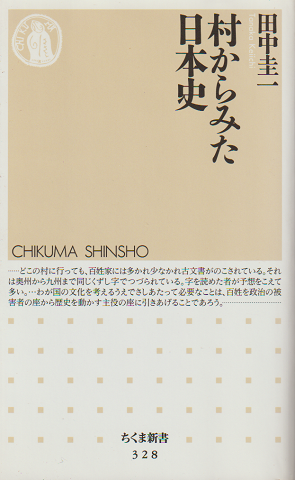 田中圭一
村からみた
日本史
CHIKUMA SHINSHO
……どこの村に行っても、百姓家には多かれ少なかれ古文書がのこされている。それ
は奥州から九州まで同じくずし字でつづられている。字を読めた者が予想をこえて
多い。…わが国の文化を考えるうえでさしあたって必要なことは、百姓を政治の被
害者の座から歴史を動かす主役の座に引きあげることであろう。……………
ちくま新書
328